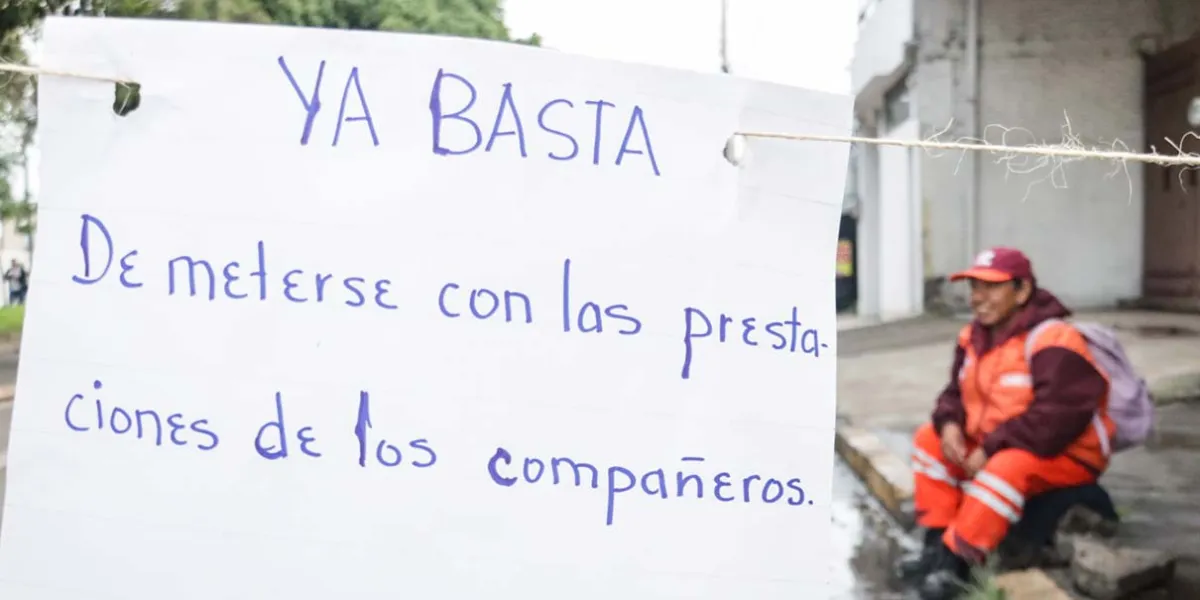 YA BASTA
De meterse con las presta-
ciones de los compañeros.